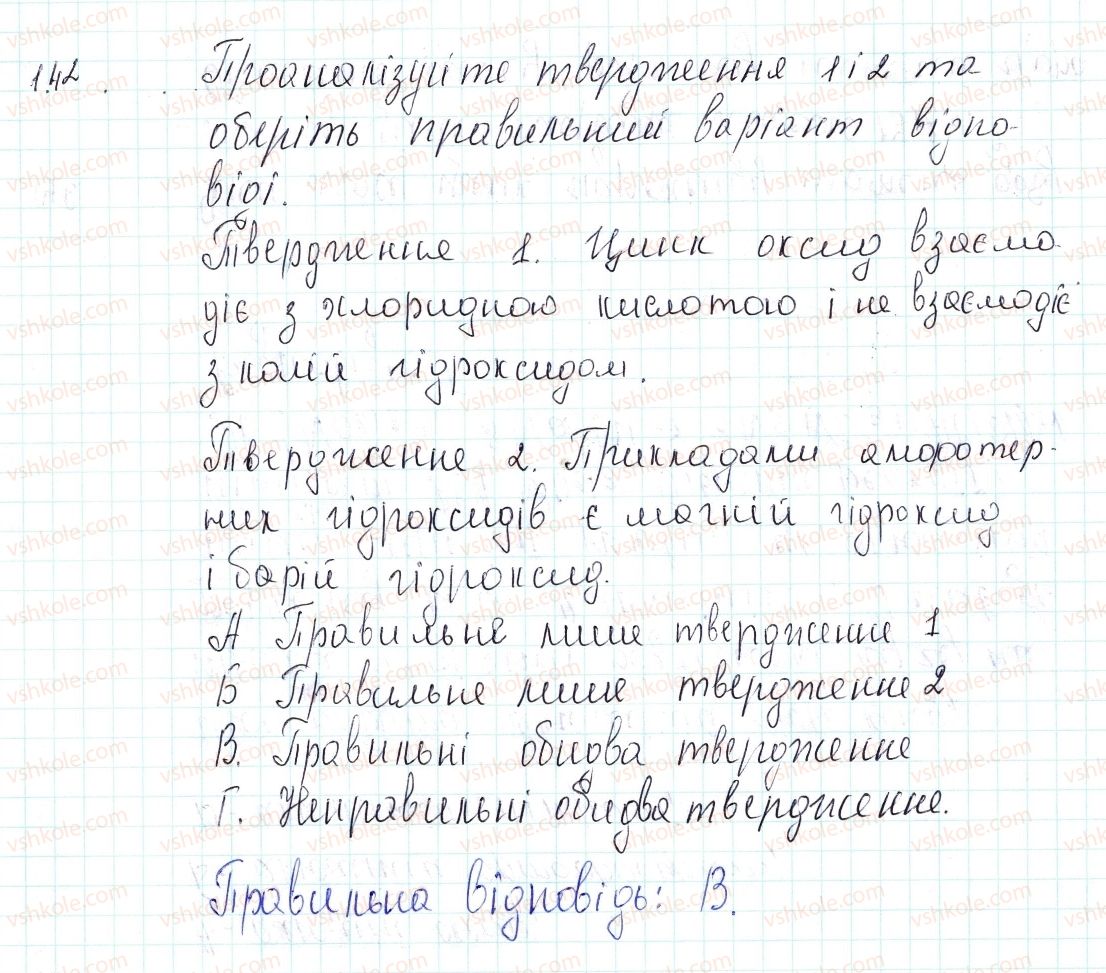 142. Проаналізуйте твердження 1 і 2 та
оберіть правильний варіант відпо-
віді.
Твердження 1. Цинк оксид взаємо-
діє з хлоридною кислотою і не взаємодіє
з калій гідроксидом.
Твердження 2. Прикладами амфотер-
них гідроксидів є магній гідроксид
і барій гідроксид.
А Правильне лише твердження 1
Б Правильне лише твердження 2
В. Правильні обидва твердження
Г. Неправильні обидва твердження.
Правильна відповідь: В.